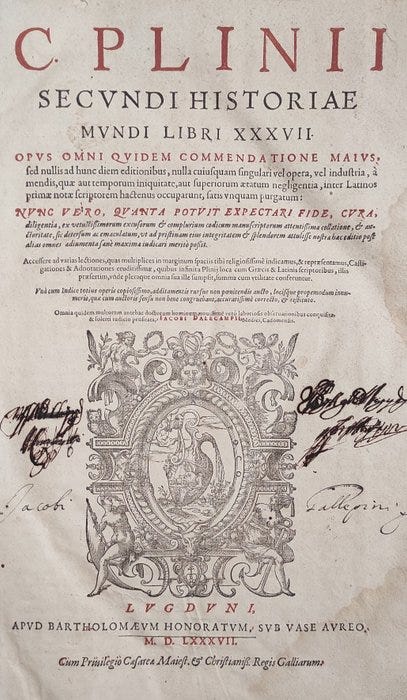 C. PLINII
SECVNDI HISTORIAE
MVNDI LIBRI XXXVII.
OPVS OMNI QVIDEM COMMENDATIONE MAIVS,
sed nullis ad hunc diem editionibus, nulla cuiusquam singulari vel opera, vel industria, à
mendis, quæ aut temporum iniquitate, aut superiorum ætatum negligentia, inter Latinos
primæ notæ scriptorem hactenus occuparunt, satis vnquam purgatum:
NVNC VERO, QVANTA POTVIT EXPECTARI FIDE, CVRA,
diligentia, ex vetustissimorum excusorum & complurium codicum manuscriptorum attentissima collatione, & au-
ctoritate, sic detersum ac emaculatum, vt non pristinam tam integritatem & splendorem attulisse nostra hæc editio post
alias omnes adiumenta sanè maxima iudicari meritò possit.
Accessere ad varias lectiones, quas multiplices in marginum spatiis tibi religiosissimè indicamus, & repræsentamus, Castig-
ationes & Adnotationes eruditissimæ, quibus infinita Plinij loca cum Græcis & Latinis scriptoribus, illis
præsertim, vnde pleraque omnia sua ille sumpsit, summa cum vtilitate conferuntur.
Vnà cum Indice totius operis copiosissimo, additamentis rursus non pœnitendis aucto, locisque propemodum innu-
meris, quæ cum auctoris sensu non bene congruebant, accuratissimè correcto, & restituto.
Omnia quidem multorum antehac doctorum hominum
& solerti iudicio pensitata, IACOBI DALECAMPII Medici, Cadomensis.
Jacobi Gallepini
LVGDVNI,
APVD BARTHOLOMÆVM HONORATVM, SVB VASE AVREO,
M. D. LXXXVII.
Cum Priuilegio Cæsareæ Maiest. & Christianiss. Regis Galliarum.